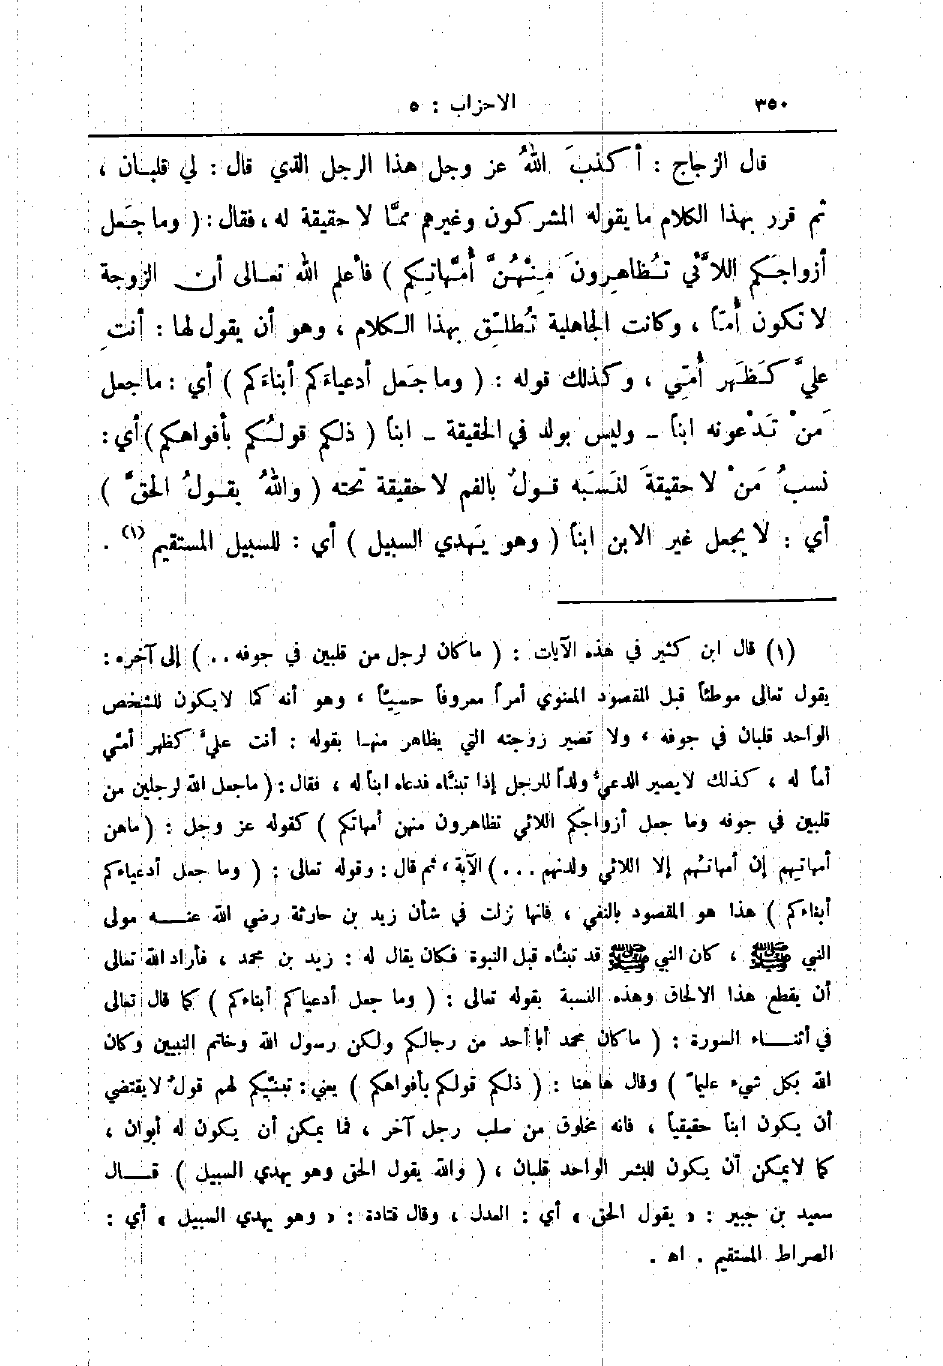 ٣٥٠
الاحزاب : ٥
قال الزجاج : أكذبَ اللهُ عز وجل هذا الرجل الذي قال : لي قلبان ،
ثم قرر بهذا الكلام ما يقوله المشركون وغيرهم ممّا لا حقيقة له ، فقال : ( وما جَعل
أزواجَكم اللاَّئي تُظاهِرونَ مِنْهُنَّ أُمَّهاتِكم ) فأعلم الله تعالى أن الزوجة
لا تكون أُمّاً ، وكانت الجاهلية تُطلِّق بهذا الكلام ، وهو أن يقول لها : أنتِ
عليَّ كَظَهر أُمِّي ، وكذلك قوله : ( وما جَعل أدعياءَكم أبناءَكم ) أي : ما جعل
مَنْ تَدْعونه ابناً – وليس بولد في الحقيقة – ابناً ( ذلكم قولُكم بأفواهكم ) أي :
نسبُ مَنْ لا حقيقةَ لنَسَبه قولٌ بالفم لا حقيقة تحته ( واللهُ يقولُ الحقَّ )
أي : لا يجعل غير الابن ابناً ( وهو يَهدي السبيل ) أي : للسبيل المستقيم (١) .
(١) قال ابن كثير في هذه الآيات : ( ماكان لرجل من قلبين في جوفه . . ) إلى آخره :
يقول تعالى موطئاً قبل المقصود المعنوي أمراً معروفاً حسيّاً ، وهو أنه كما لا يكون للشخص
الواحد قلبان في جوفه ، ولا تصير زوجته التي يظاهر منها بقوله : أنت عليَّ كظهر أمّي
أماً له ، كذلك لا يصير الدعيُّ ولداً للرجل إذا تبنّاه فدعاه ابناً له ، فقال : ( ماجعل الله لرجلين من
قلبين في جوفه وما جعل أزواجكم اللائي تظاهرون منهن أمهاتكم ) كقوله عز وجل : ( ماهن
أمهاتهم إن أمهاتُهم إلا اللائي ولدنهم . . . ) الآية ، ثم قال : وقوله تعالى : ( وما جعل أدعياءكم
أبناءكم ) هذا هو المقصود بالنفي ، فانها نزلت في شأن زيد بن حارثة رضي الله عنه مولى
النبي ﷺ ، كان النبي ﷺ قد تبنّاه قبل النبوة فكان يقال له : زيد بن محمد ، فأراد الله تعالى
أن يقطع هذا الالحاق وهذه النسبة بقوله تعالى : ( وما جعل أدعياكم أبناءكم ) كما قال تعالى
في أثناء السورة : ( ماكان محمد أبا أحد من رجالكم ولكن رسول الله وخاتم النبيين وكان
الله بكل شيء عليماً ) وقال هاهنا : ( ذلكم قولكم بأفواهكم ) يعني : تبنّيكم لهم قولٌ لا يقتضي
أن يكون ابناً حقيقياً ، فانه مخلوق من صلب رجل آخر ، فما يمكن أن يكون له أبوان ،
كما لا يمكن أن يكون للبشر الواحد قلبان ، ( والله يقول الحق وهو يهدي السبيل ) قال
سعيد بن جبير : « يقول الحق » أي : العدل ، وقال قتادة : « وهو يهدي السبيل » أي :
الصراط المستقيم . اه .